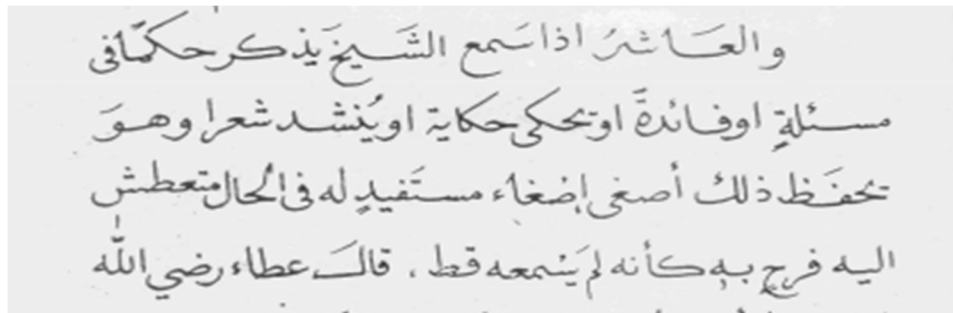 والعَاشرُ اذا سَمع الشَيخَ يَذكر حكمًا فى
مسئلةٍ اوفائدةً او يحكى حكاية او يُنشد شعرا وهوَ
يحفَظ ذلك أصغى إصْغاء مستَفيدٍ له فى الحال متعطش
اليه فرحٍ به كأنه لم يَسْمعه قط . قالَ عطاء رضي الله